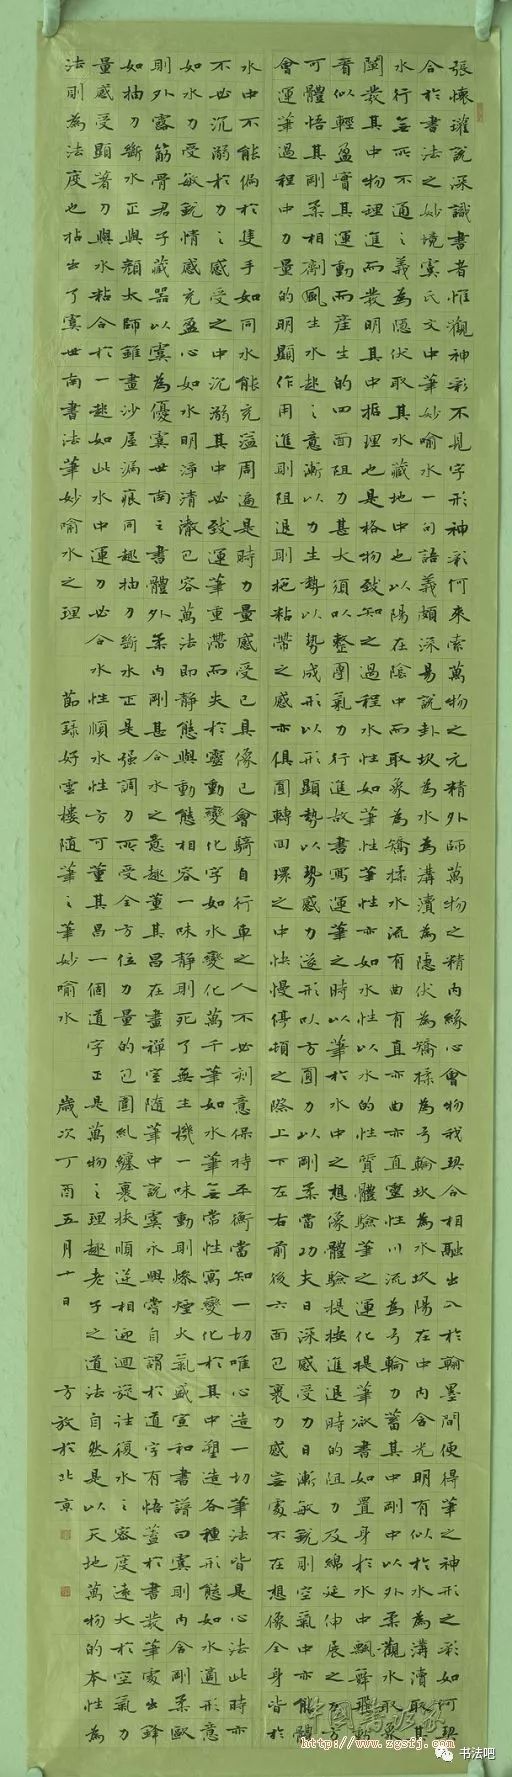 張懷瓘說深識書者惟觀神彩不見字形神彩何來索萬物之元精外師萬物之精內緣心會物我契合相融出入於翰墨間便得筆之神形之彩如何契
合於書法之妙境虞氏文中筆妙喻水一句語義頗深易說卦坎為水為溝瀆為隱伏為矯揉為弓輪坎為水坎陽在中內含光明有似於水為溝瀆取其
水行無所不通之義為隱伏取其水藏地中也以陽在陰中而取象為矯揉水流有曲有直亦曲亦直靈性川流為弓輪力蓄其中剛中以外柔觀水取象
闡發其中物理進而發明其中根理也是格物致知之過程水性如筆性筆性亦如水性以水的性質體驗筆之運化提筆欲書如置身於水中飄舞飛動
看似輕盈實其運動而產生的四面阻力甚大須以整團氣力行進故書寫運筆之時以筆於水中之想像體驗提按進退時的阻力及綿延伸展之力方
可體悟其剛柔相劑風生水起之意漸以力生勢以勢成形以形顯勢以勢感力遂形以方圓力以剛柔當功夫日深感受力日漸敏銳則空氣中亦能體
會運筆過程中力量的明顯作用進則阻退則拖粘帶之感亦俱圓轉回環之中快慢停頓之際上下左右前後六面已裹力感無處不在想像全身皆於
水中不能偏於隻手如同水能充溢周遍是時力量感受已具像已會騎自行車之人不必刻意保持平衡當知一切唯心造一切筆法皆是心法此時亦
不必沉溺於力之感受之中沉溺其中必致運筆重滯而失於靈動變化字如水變化萬千筆如水筆無常性寓變化於其中塑造各種形態如水適形意
如水力受敏銳情感充盈心如水明淨清澈已容萬法即靜態與動態相容一味靜則死了無生機一味動則燥煙火氣盛宣和書譜曰虞則內含剛柔歐
則外露筋骨君子藏器以虞為優虞世南之書體外柔內剛甚合水之意趣董其昌在畫禪室隨筆中說虞永興嘗自謂於道字有悟蓋於書發筆處出鋒
如抽刀斷水正與顏太師錐畫沙屋漏痕同趣抽刀斷水正是強調力所受全方位力量的包圍糾纏裹挾順逆相迎迴旋往復水之容度遠大於空氣力
量感受顯著刀與水粘合於一趣如此水中運力必合水性順水性方可董其昌一個道字正是萬物之理趣老子之道法自然是以天地萬物的本性為
法則為法度也拈出了虞世南書法筆妙喻水之理 節錄好雲樓隨筆之筆妙喻水 歲次丁酉五月十日 方放於北京
中国书法家
http://www.zgsfj.com
书法吧